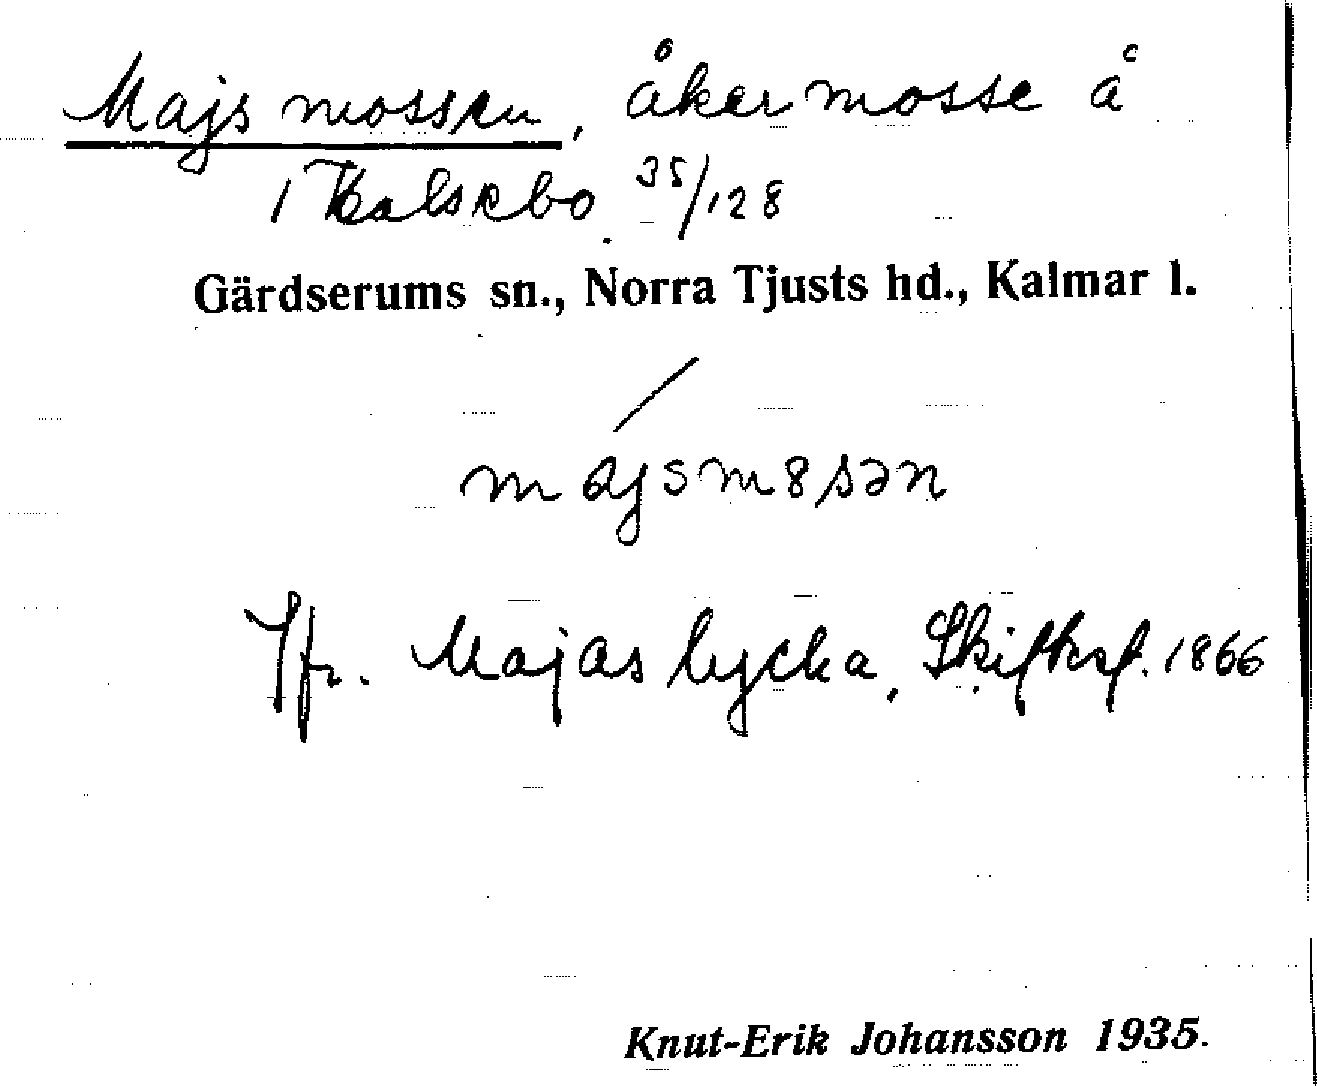 Majsmossen, åkermosse å
1 Kalsebo. 35/128
Gärdserums sn., Norra Tjusts hd., Kalmar l.
/
majsm8sən
Jfr. Majas lycka, Skifteskf. 1866
Knut-Erik Johansson 1935.